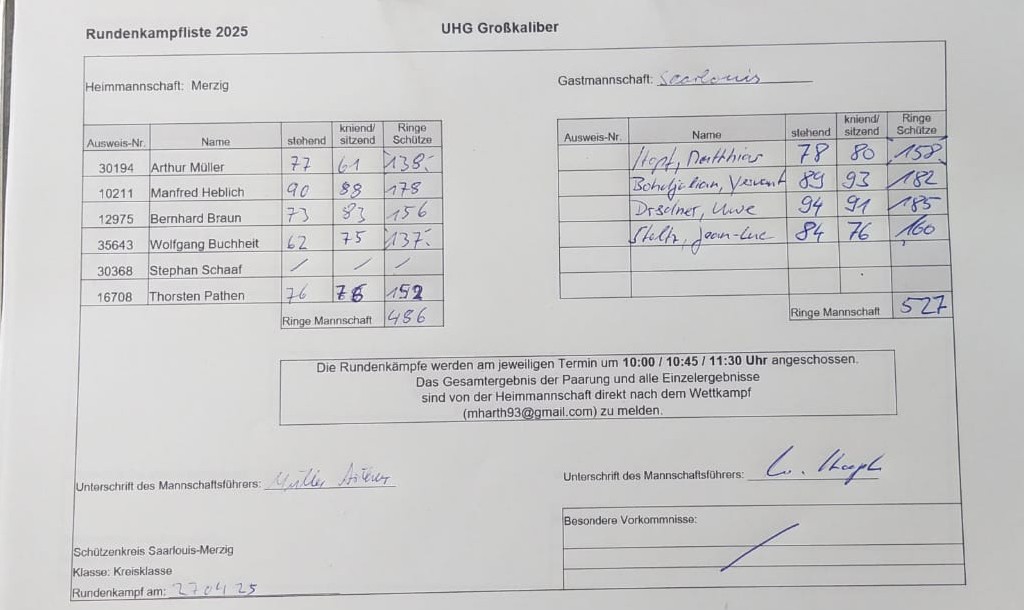 Rundenkampfliste 2025 UHG Großkaliber
Heimmannschaft: Merzig Gastmannschaft: Saarlouis
Ausweis-Nr. Name stehend kniend/ sitzend Ringe Schütze
30194 Arthur Müller 77 61 138.
10211 Manfred Heblich 90 88 178
12975 Bernhard Braun 73 83 156
35643 Wolfgang Buchheit 62 75 137.
30368 Stephan Schaaf / / /
16708 Thorsten Pathen 76 76 152
Ringe Mannschaft 486
Ausweis-Nr. Name stehend kniend/ sitzend Ringe Schütze
Matthias 78 80 158
89 93 182
Uwe 94 91 185
Jean-Luc 84 76 160
Ringe Mannschaft 527
Die Rundenkämpfe werden am jeweiligen Termin um 10:00 / 10:45 / 11:30 Uhr angeschossen.
Das Gesamtergebnis der Paarung und alle Einzelergebnisse
sind von der Heimmannschaft direkt nach dem Wettkampf
(mharth93@gmail.com) zu melden.
Unterschrift des Mannschaftsführers: Müller
Unterschrift des Mannschaftsführers:
Besondere Vorkommnisse:
Schützenkreis Saarlouis-Merzig
Klasse: Kreisklasse
Rundenkampf am: 27 04 25